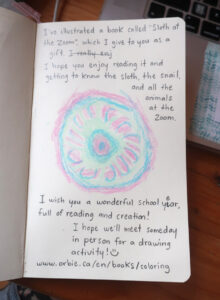 I've illustrated a book called "Sloth at
the Zoom", which I give to you as a
gift. I really enj
I hope you enjoy reading it and
getting to know the sloth, the snail,
and all the
animals
at the
Zoom.
I wish you a wonderful school year,
full of reading and creation!
I hope we'll meet someday
in person for a drawing
activity!
www.orbie.ca/en/books/coloring